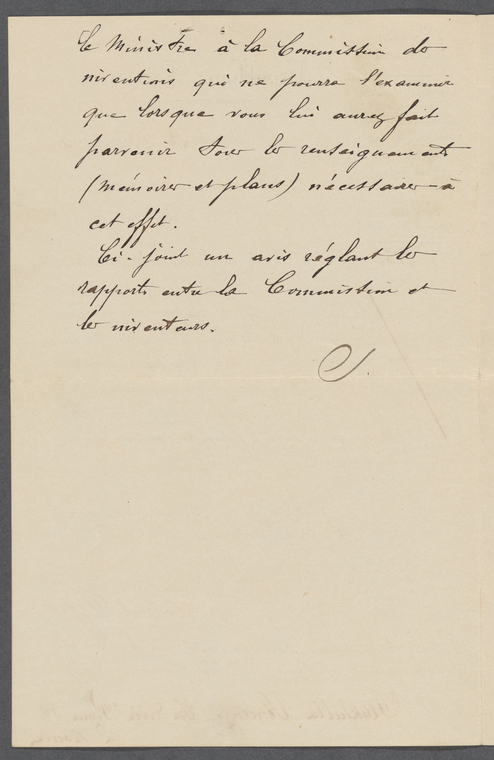 le Ministre à la Commission des
inventions qui ne pourra l'examiner
que lorsque vous lui aurez fait
parvenir tous les renseignements
(mémoires et plans) nécessaires à
cet effet.
Ci-joint un avis réglant les
rapports entre la Commission et
les inventeurs.
S.